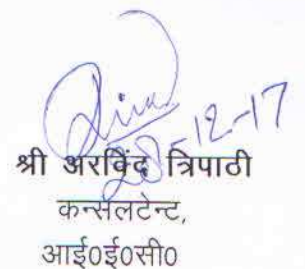 28-12-17
श्री अरविंद त्रिपाठी
कन्सलटेन्ट,
आई0ई0सी0